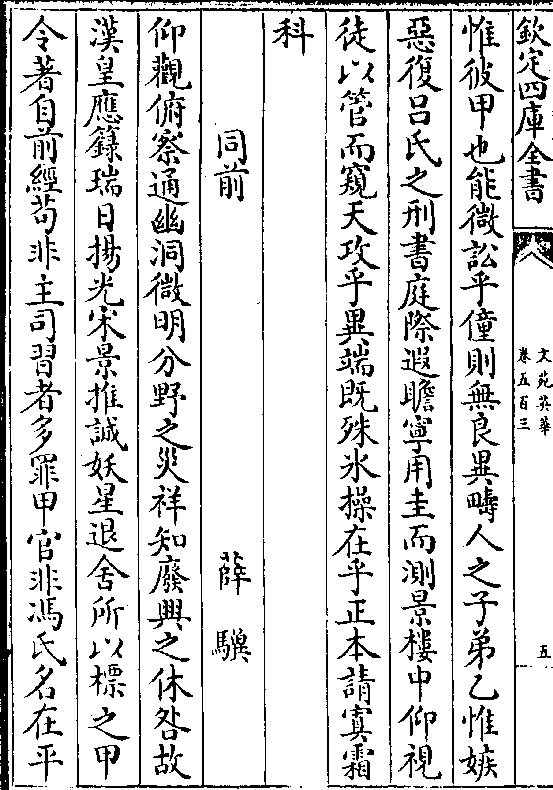 欽定四庫全書
文苑英華
卷五百三
五
惟彼甲也能微訟乎僮則無良異疇人之子弟乙惟嫉
惡復呂氏之刑書庭際遐瞻寧用圭而測景樓中仰視
徒以管而窺天攻乎異端既殊氷操在乎正本請寘霜
科
同前
薛驥
仰觀俯察通幽洞微明分野之災祥知廢興之休咎故
漢皇應籙瑞日揚光宋景推誠妖星退舍所以標之甲
令著自前經苟非主司習者多罪甲官非馮氏名在平